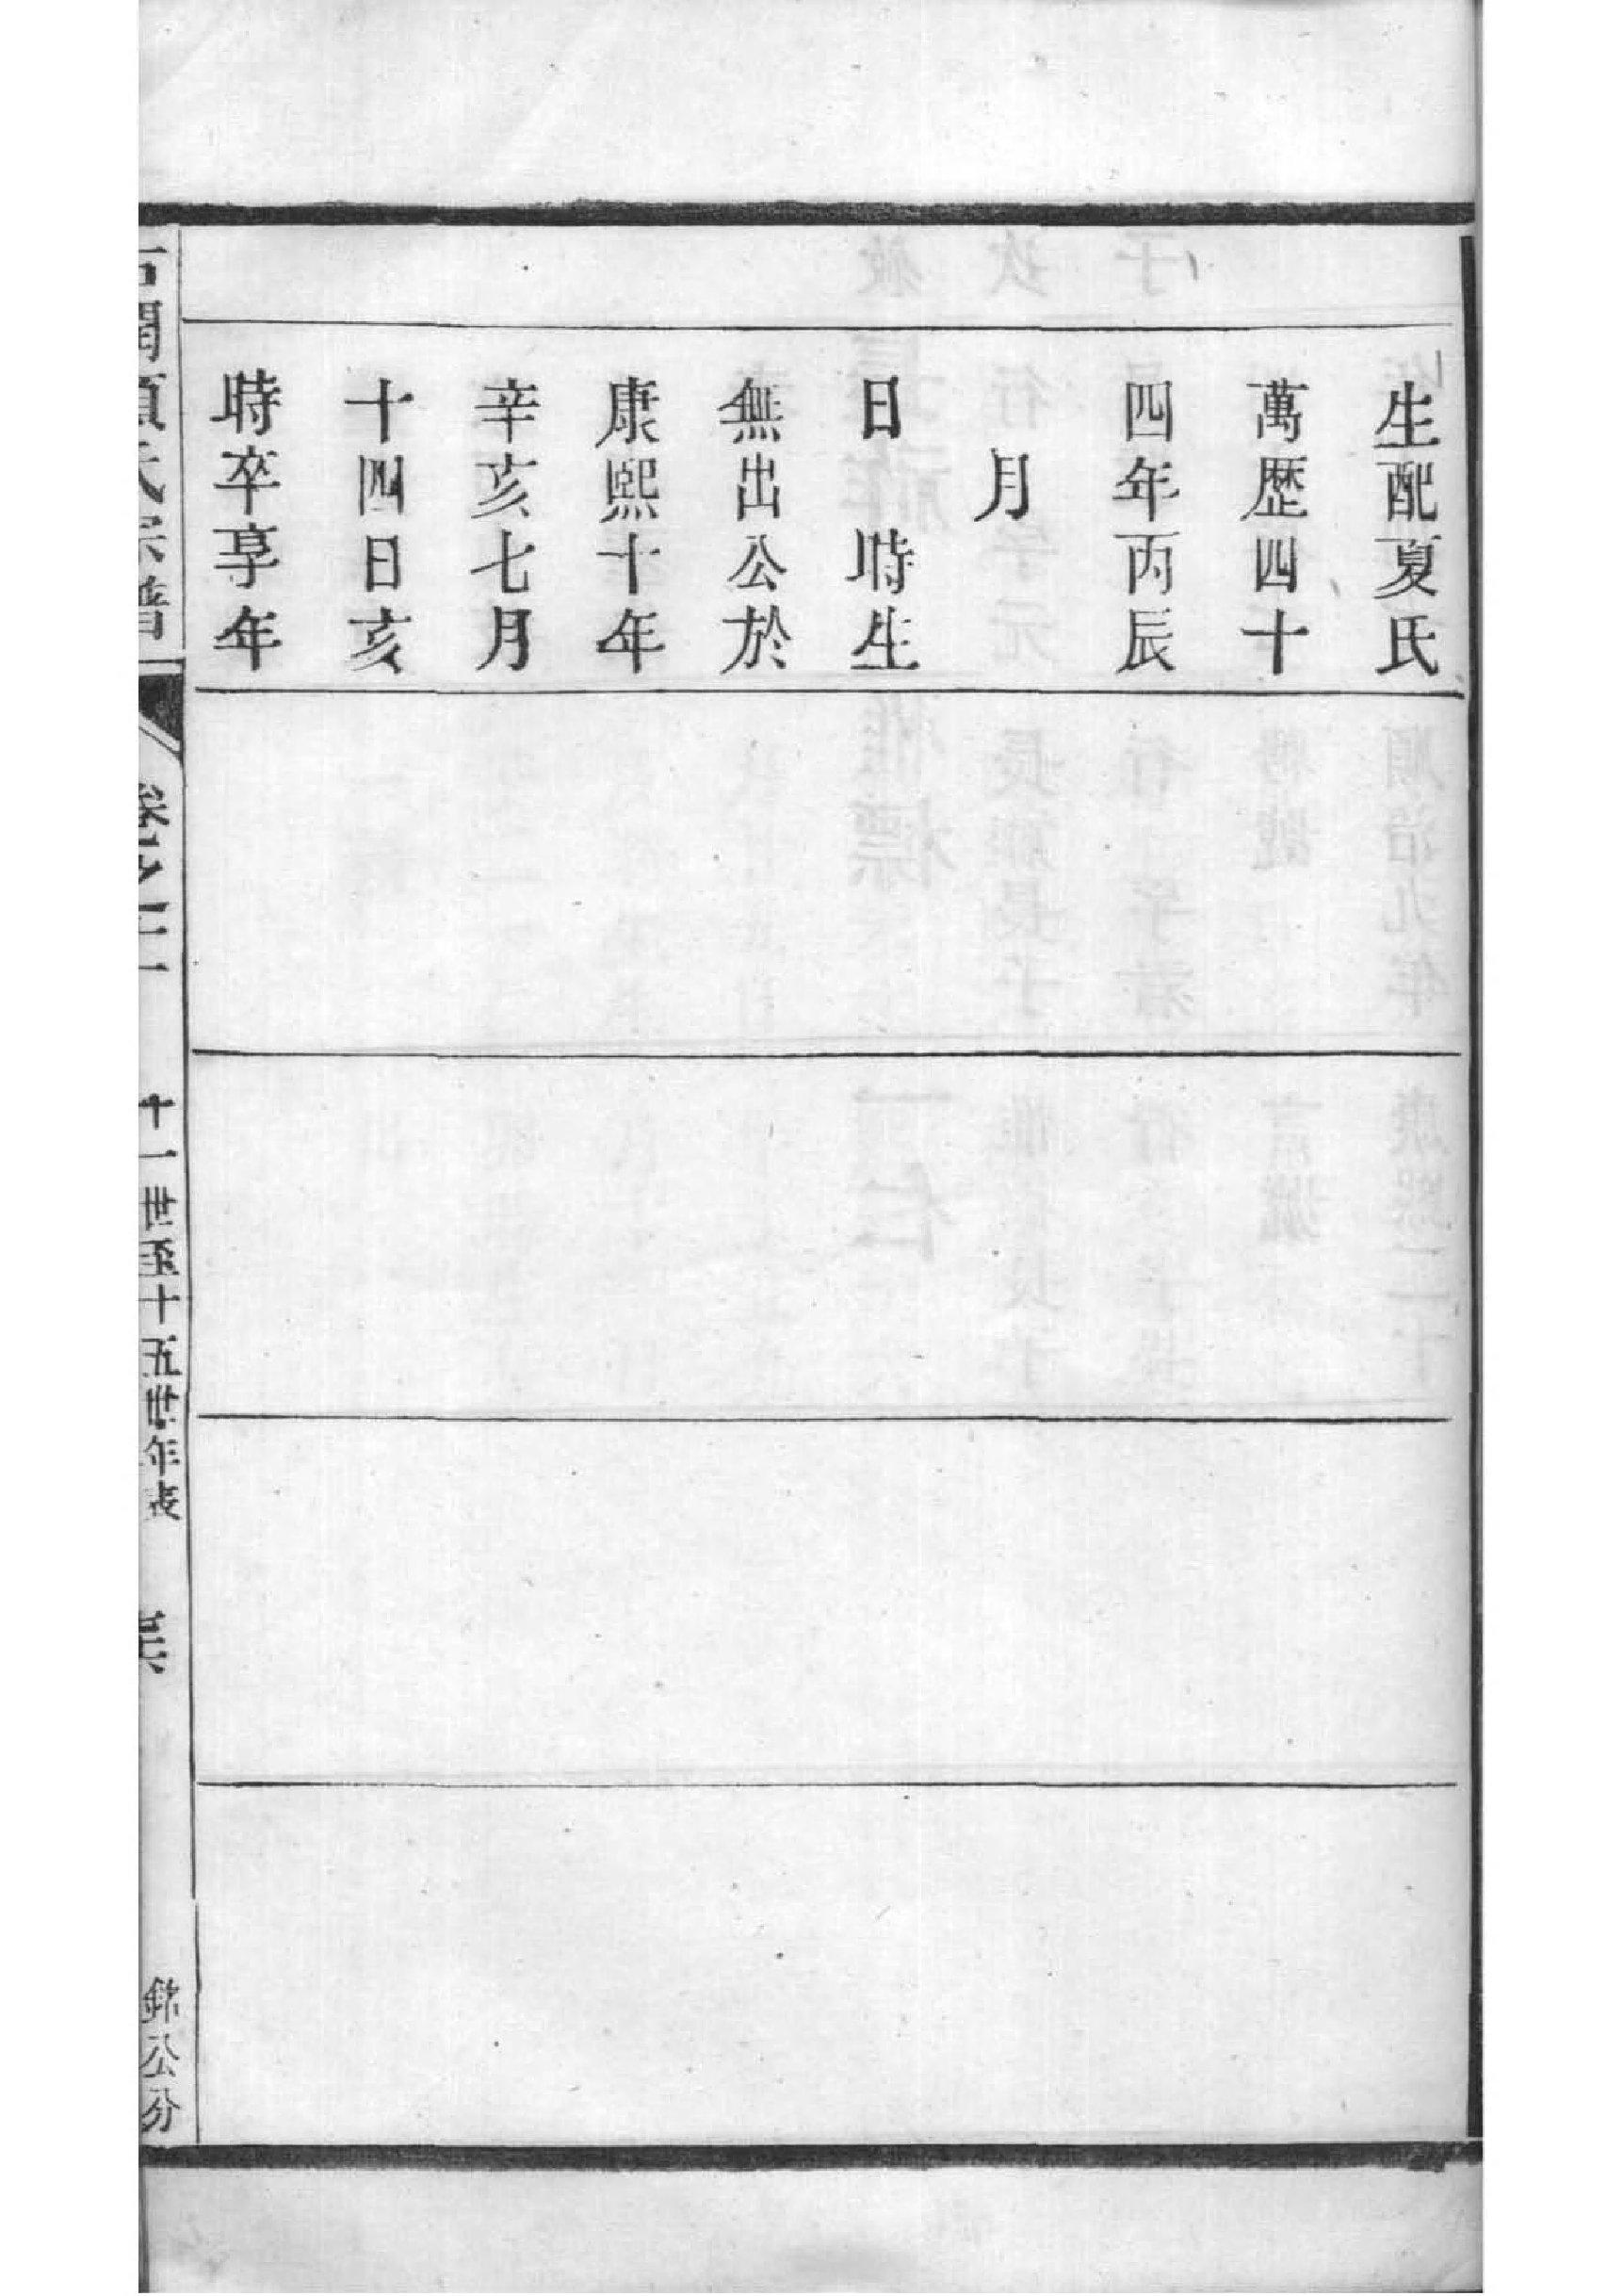 生配夏氏
萬歴四十
四年丙辰
月
日　時生
無出公於
康熙十年
辛亥七月
十四日亥
時卒享年
氏宗譜
卷之
十一世至十五世年表
公分